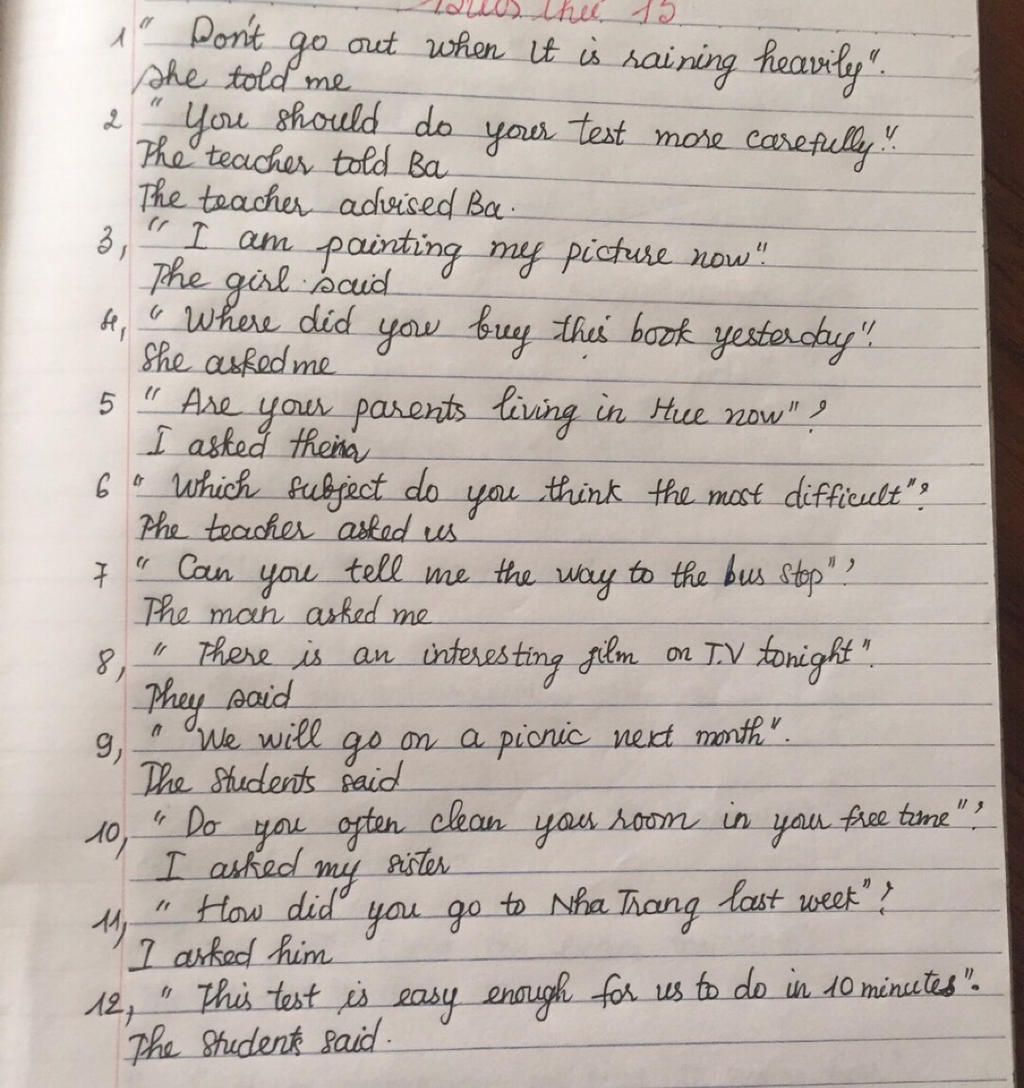 thứ 15
1 " Don't go out when it is raining heavily".
She told me
2 " You should do your test more carefully".
The teacher told Ba
The teacher advised Ba.
3, " I am painting my picture now".
The girl said
4, " Where did you buy this book yesterday".
She asked me
5 " Are your parents living in Hue now" ?
I asked them
6 " Which subject do you think the most difficult" ?
The teacher asked us
7 " Can you tell me the way to the bus stop" ?
The man asked me
8, " There is an interesting film on T.V tonight".
They said
9, " We will go on a picnic next month".
The students said
10, " Do you often clean your room in your free time" ?
I asked my sister
11, " How did you go to Nha Trang last week" ?
I asked him
12, " This test is easy enough for us to do in 10 minutes".
The students said.